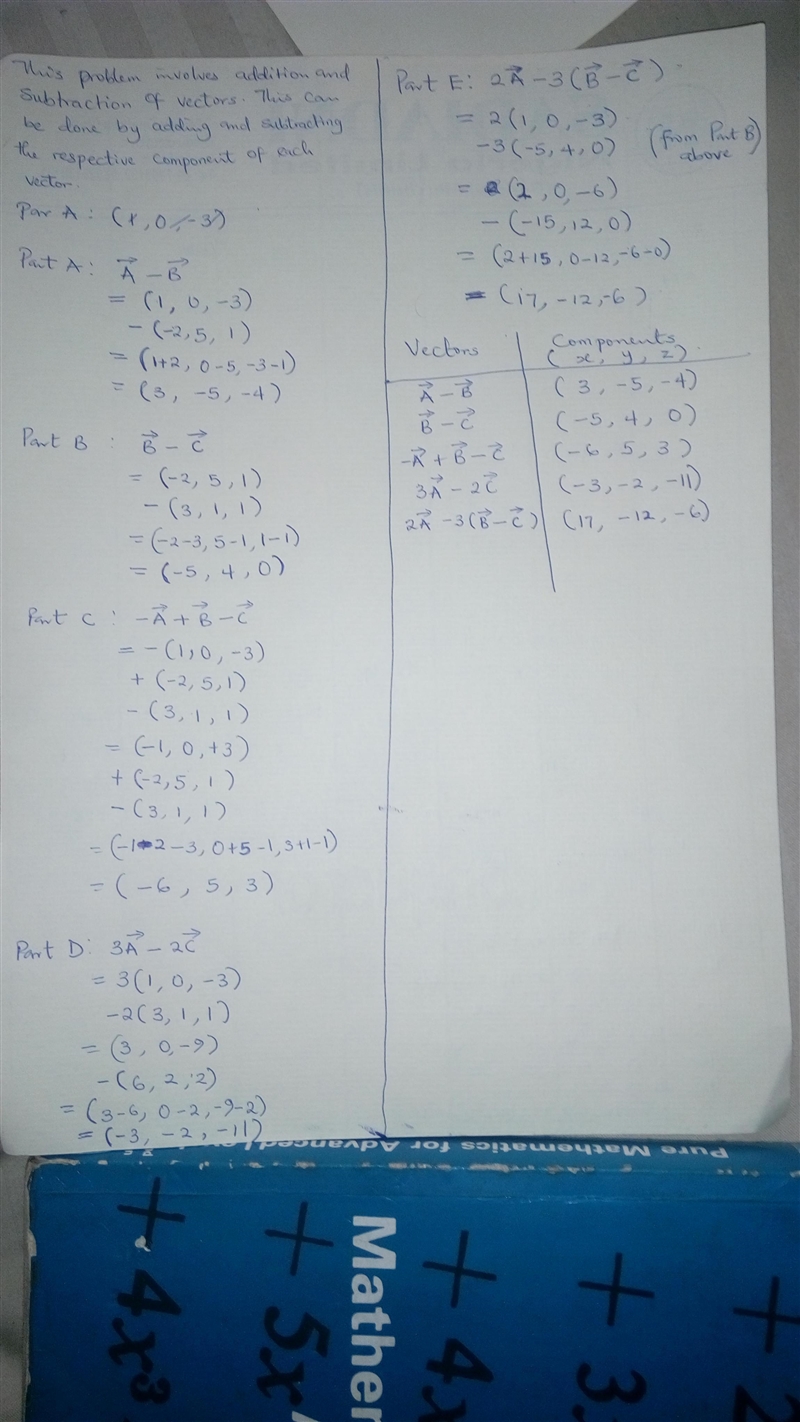 This problem involves addition and
Subtraction of vectors. This can
be done by adding and subtracting
the respective component of each
vector.
Par A : (1, 0, -3)
Part A : A⃗ - B⃗
= (1, 0, -3)
- (-2, 5, 1)
= (1+2, 0-5, -3-1)
= (3, -5, -4)
Part B : B⃗ - C⃗
= (-2, 5, 1)
- (3, 1, 1)
= (-2-3, 5-1, 1-1)
= (-5, 4, 0)
Part C : -A⃗ + B⃗ - C⃗
= -(1, 0, -3)
+ (-2, 5, 1)
- (3, 1, 1)
= (-1, 0, +3)
+ (-2, 5, 1)
- (3, 1, 1)
= (-1-2-3, 0+5-1, 3+1-1)
= (-6, 5, 3)
Part D: 3A⃗ - 2C⃗
= 3(1, 0, -3)
-2(3, 1, 1)
= (3, 0, -9)
-(6, 2, 2)
= (3-6, 0-2, -9-2)
= (-3, -2, -11)
Part E: 2A⃗ - 3(B⃗ - C⃗)
= 2(1, 0, -3)
-3(-5, 4, 0) (from Part B) above
= (2, 0, -6)
- (-15, 12, 0)
= (2+15, 0-12, -6-0)
= (17, -12, -6)
Vectors Components (x, y, z)
A⃗ - B⃗ (3, -5, -4)
B⃗ - C⃗ (-5, 4, 0)
-A⃗ + B⃗ - C⃗ (-6, 5, 3)
3A⃗ - 2C⃗ (-3, -2, -11)
2A⃗ - 3(B⃗ - C⃗) (17, -12, -6)
Pure Mathematics for Advanced
+ 4x³
+ 5x
Mather
+ 4x
+ 3
+ 2